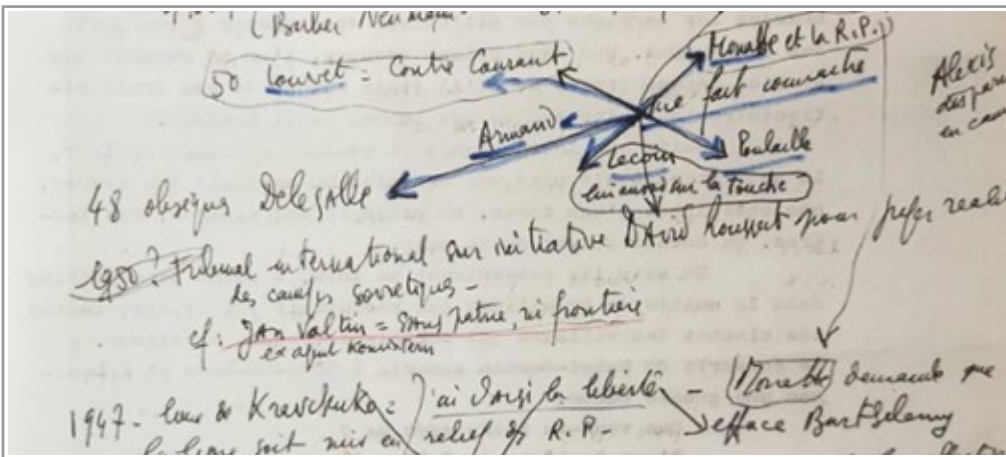 (Barber Neumann
50 Louvet = Contre Courant
Monatte et la R.P.)
me fait connaître
Alexis
Armand
Lecoin
Poulaille
lui aussi sur la touche
48 obsèques Delesalle
1950? Tribunal international sur initiative David Rousset pour
des camps soviétiques -
cf: Jan Valtin = Sans patrie, ni frontière
ex agent Komintern
1947 - de Kravchenko = J'ai choisi la liberté - Monatte demande que
soit mis en relief ds R.P. - J'efface Barthélemy